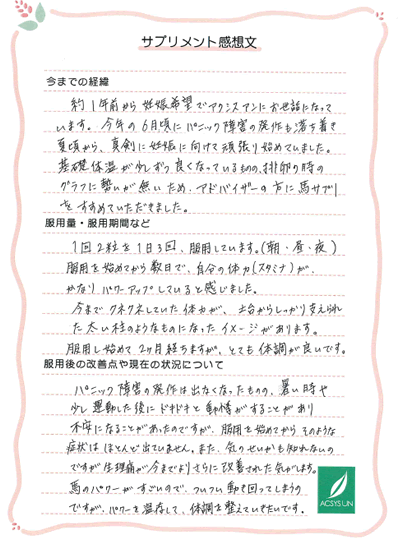 サプリメント感想文
今までの経緯
約1年前から妊娠希望でアクシスアンにお世話になって
います。今年の6月頃にパニック障害の発作も落ち着き
夏頃から、真剣に妊娠に向けて頑張り始めていました。
基礎体温が少しずつ良くなっているものの、排卵の時の
グラフに勢いが無いため、アドバイザーの方に馬サプリ
をすすめていただきました。
服用量・服用期間など
1回2粒を1日3回、服用しています。(朝・昼・夜)
服用を始めてから数日で、自分の体力(スタミナ)が、
かなりパワーアップしていると感じました。
今までクネクネしていた体力が、土台からしっかり支えられ
た太い柱のようなものになったイメージがあります。
服用し始めて2ヶ月経ちますが、とても体調が良いです。
服用後の改善点や現在の状況について
パニック障害の発作は出なくなったものの、暑い時や
少し運動した後にドキドキと動悸がすることがあり
不安になることがあったのですが、服用を始めてからそのような
症状はほとんど出ていません。また、気のせいかも知れないの
ですが生理痛が今までよりさらに改善された気がします。
馬のパワーがすごいので、ついつい動き回ってしまうの
ですが、パワーを温存して、体調を整えていきたいです。
ACSYS UN